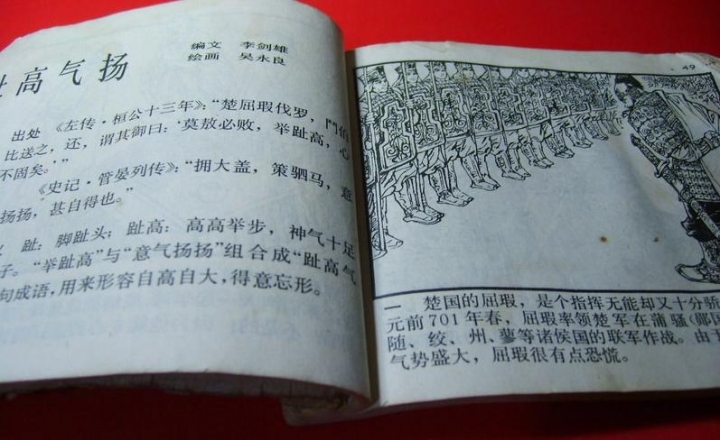 高气扬
编文 李剑雄
绘画 吴永良
出处 《左传·桓公十三年》：“楚屈瑕伐罗，鬥伯
比送之，还，谓其御曰：‘莫敖必败，举趾高，心
不固矣。’”
《史记·管晏列传》：“拥大盖，策驷马，意
扬扬，甚自得也。”
趾：脚趾头；趾高：高高举步，神气十足
子。“举趾高”与“意气扬扬”组合成“趾高气
句成语，用来形容自高自大，得意忘形。
49
一 楚国的屈瑕，是个指挥无能却又十分骄
元前701年春，屈瑕率领楚军在蒲骚（郧国
随、绞、州、蓼等诸侯国的联军作战。由于
气势盛大，屈瑕很有点恐慌。